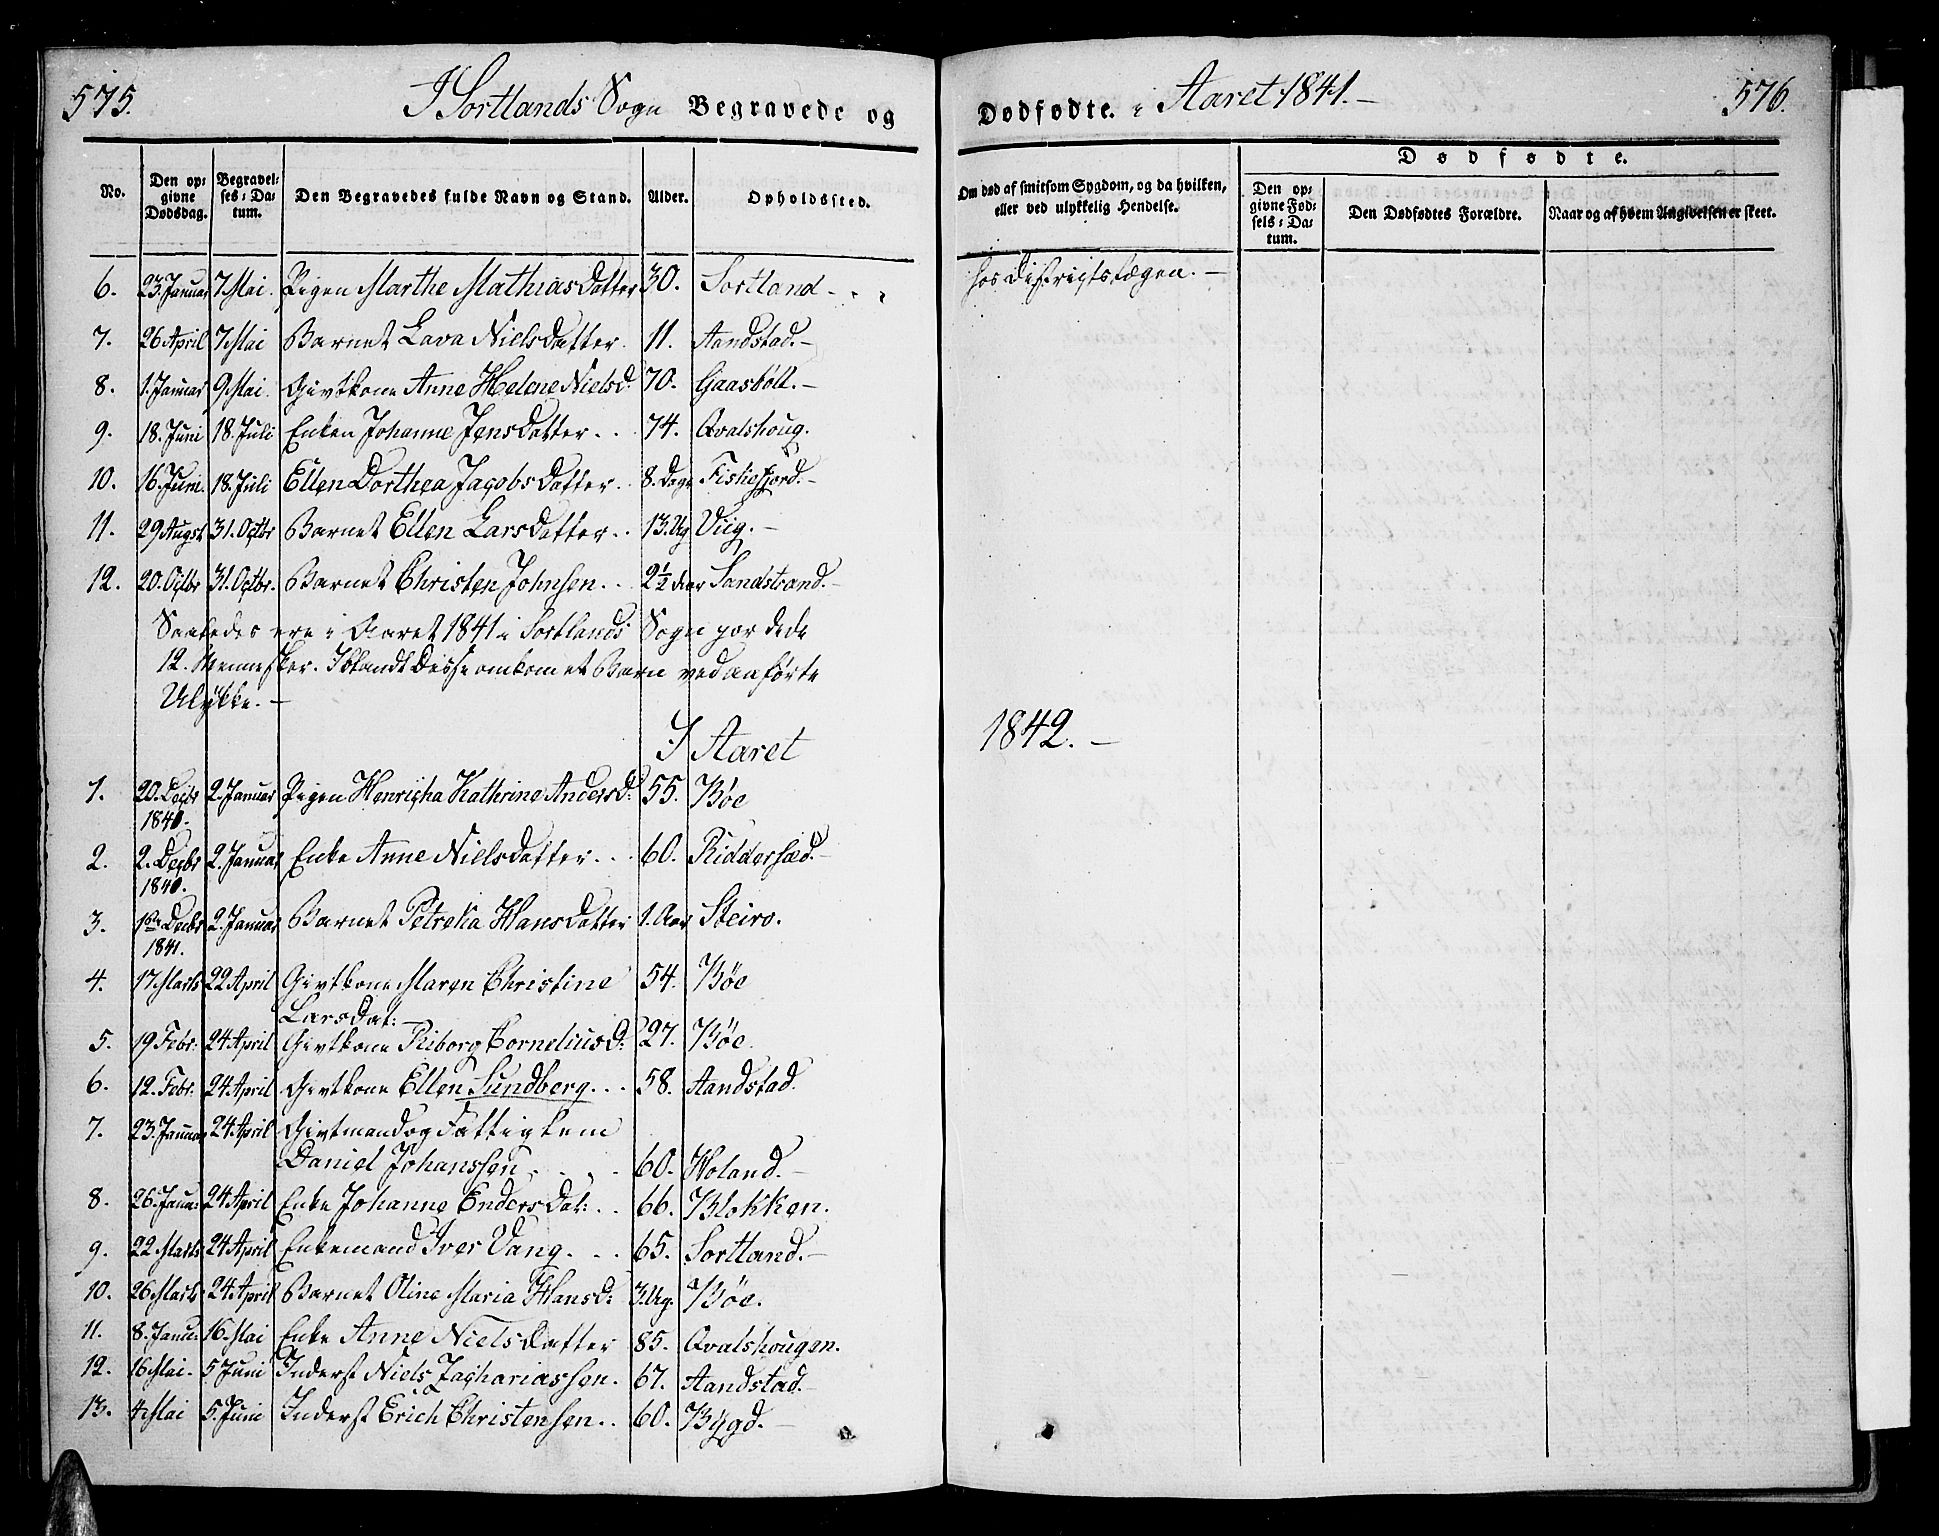 575. I Sortlands Sogn Begravede og Dødfødte. i Aaret 1841.— 576.
No.
Den op-
givne
Dødsdag.
Begravel-
ses-Da-
tum.
Den Begravedes fulde Navn og Stand.
Alder.
Opholdssted.
Om død af smitsom Sygdom, og da hvilken,
eller ved ulykkelig Hendelse.
Dødfødte.
Den op-
givne Fød-
sels-Da-
tum.
Den Dødfødtes Forældre.
Naar og af hvem Angivelsen er skeet.
6. 23 Januar 7 Mai. Pigen Marthe Mathiasdatter 30. Sortland hos Districtslægen.—
7. 26 April 7 Mai Barnet Lava Nielsdatter. 11. Aandstad.—
8. 1. Januar 9 Mai. Givtkone Anne Helene Nielsd. 70. Gaasbøll.—
9. 18. Juni 18. Juli Enken Johanne Jensdatter.. 74. Qvalshoug.
10. 16. Juni. 18. Juli Ellen Dorthea Jacobsdatter. 8. Dage Fiskefjord.—
11. 29 Augst 31. Octbr Barnet Ellen Larsdatter.. 13. Ug Viig.—
12. 20. Octbr 31. Octbr. Barnet Christen Johnsen.. 2½ Aar Sandstrand.—
Saaledes ere i Aaret 1841 i Sortlands Sogn døde
12. Mennesker. Iblandt disse omkom et Barn ved anførte
Ulykke.—
I Aaret 1842.—
1. 20. Decbr 2. Januar Pigen Henricha Kathrine Andersd: 55. Bøe
1840.
2. 2. Decbr 2. Januar Enke Anne Nielsdatter... 60. Riddersæd.—
1840.
3. 1ste Decbr 2. Januar Barnet Petrelia Hansdatter 1. Aar Steiro.
1841.
4. 17 Marts 22 April Givtkone Maren Christine 54. Bøe
Larsdat:
5. 19 Febr. 24 April Givtkone Riborg Corneliusd: 27. Bøe.
6. 12. Febr. 24 April Givtkone Ellen Sundberg... 58. Aandstad.
7. 23. Januar 24 April Givtmand og Fattiglem
Daniel Johanssen.. 60. Holand.—
8. 26. Janu: 24 April Enke Johanne Endersdat:.. 66. Blokken.
9. 22 Marts 24 April Enkemand Iver Vang... 65. Sortland.—
10. 26 Marts 24 April Barnet Oline Maria Hansd: 3. Ug. Bøe.
11. 8. Janu: 16. Mai Enke Anne Nielsdatter 85. Qvalshougen.
12. 16 Mai. 5 Juni Inderst Niels Zachariassen. 67. Aandstad.—
13. 4 Mai 5. Juni Inderst Erich Christensen.. 60. Bygd.—